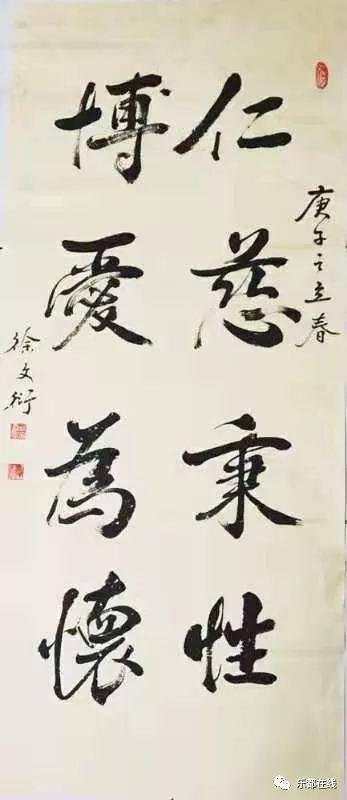 庚子之立春
仁慈秉性
博愛為懷
徐文衍
乐都在线